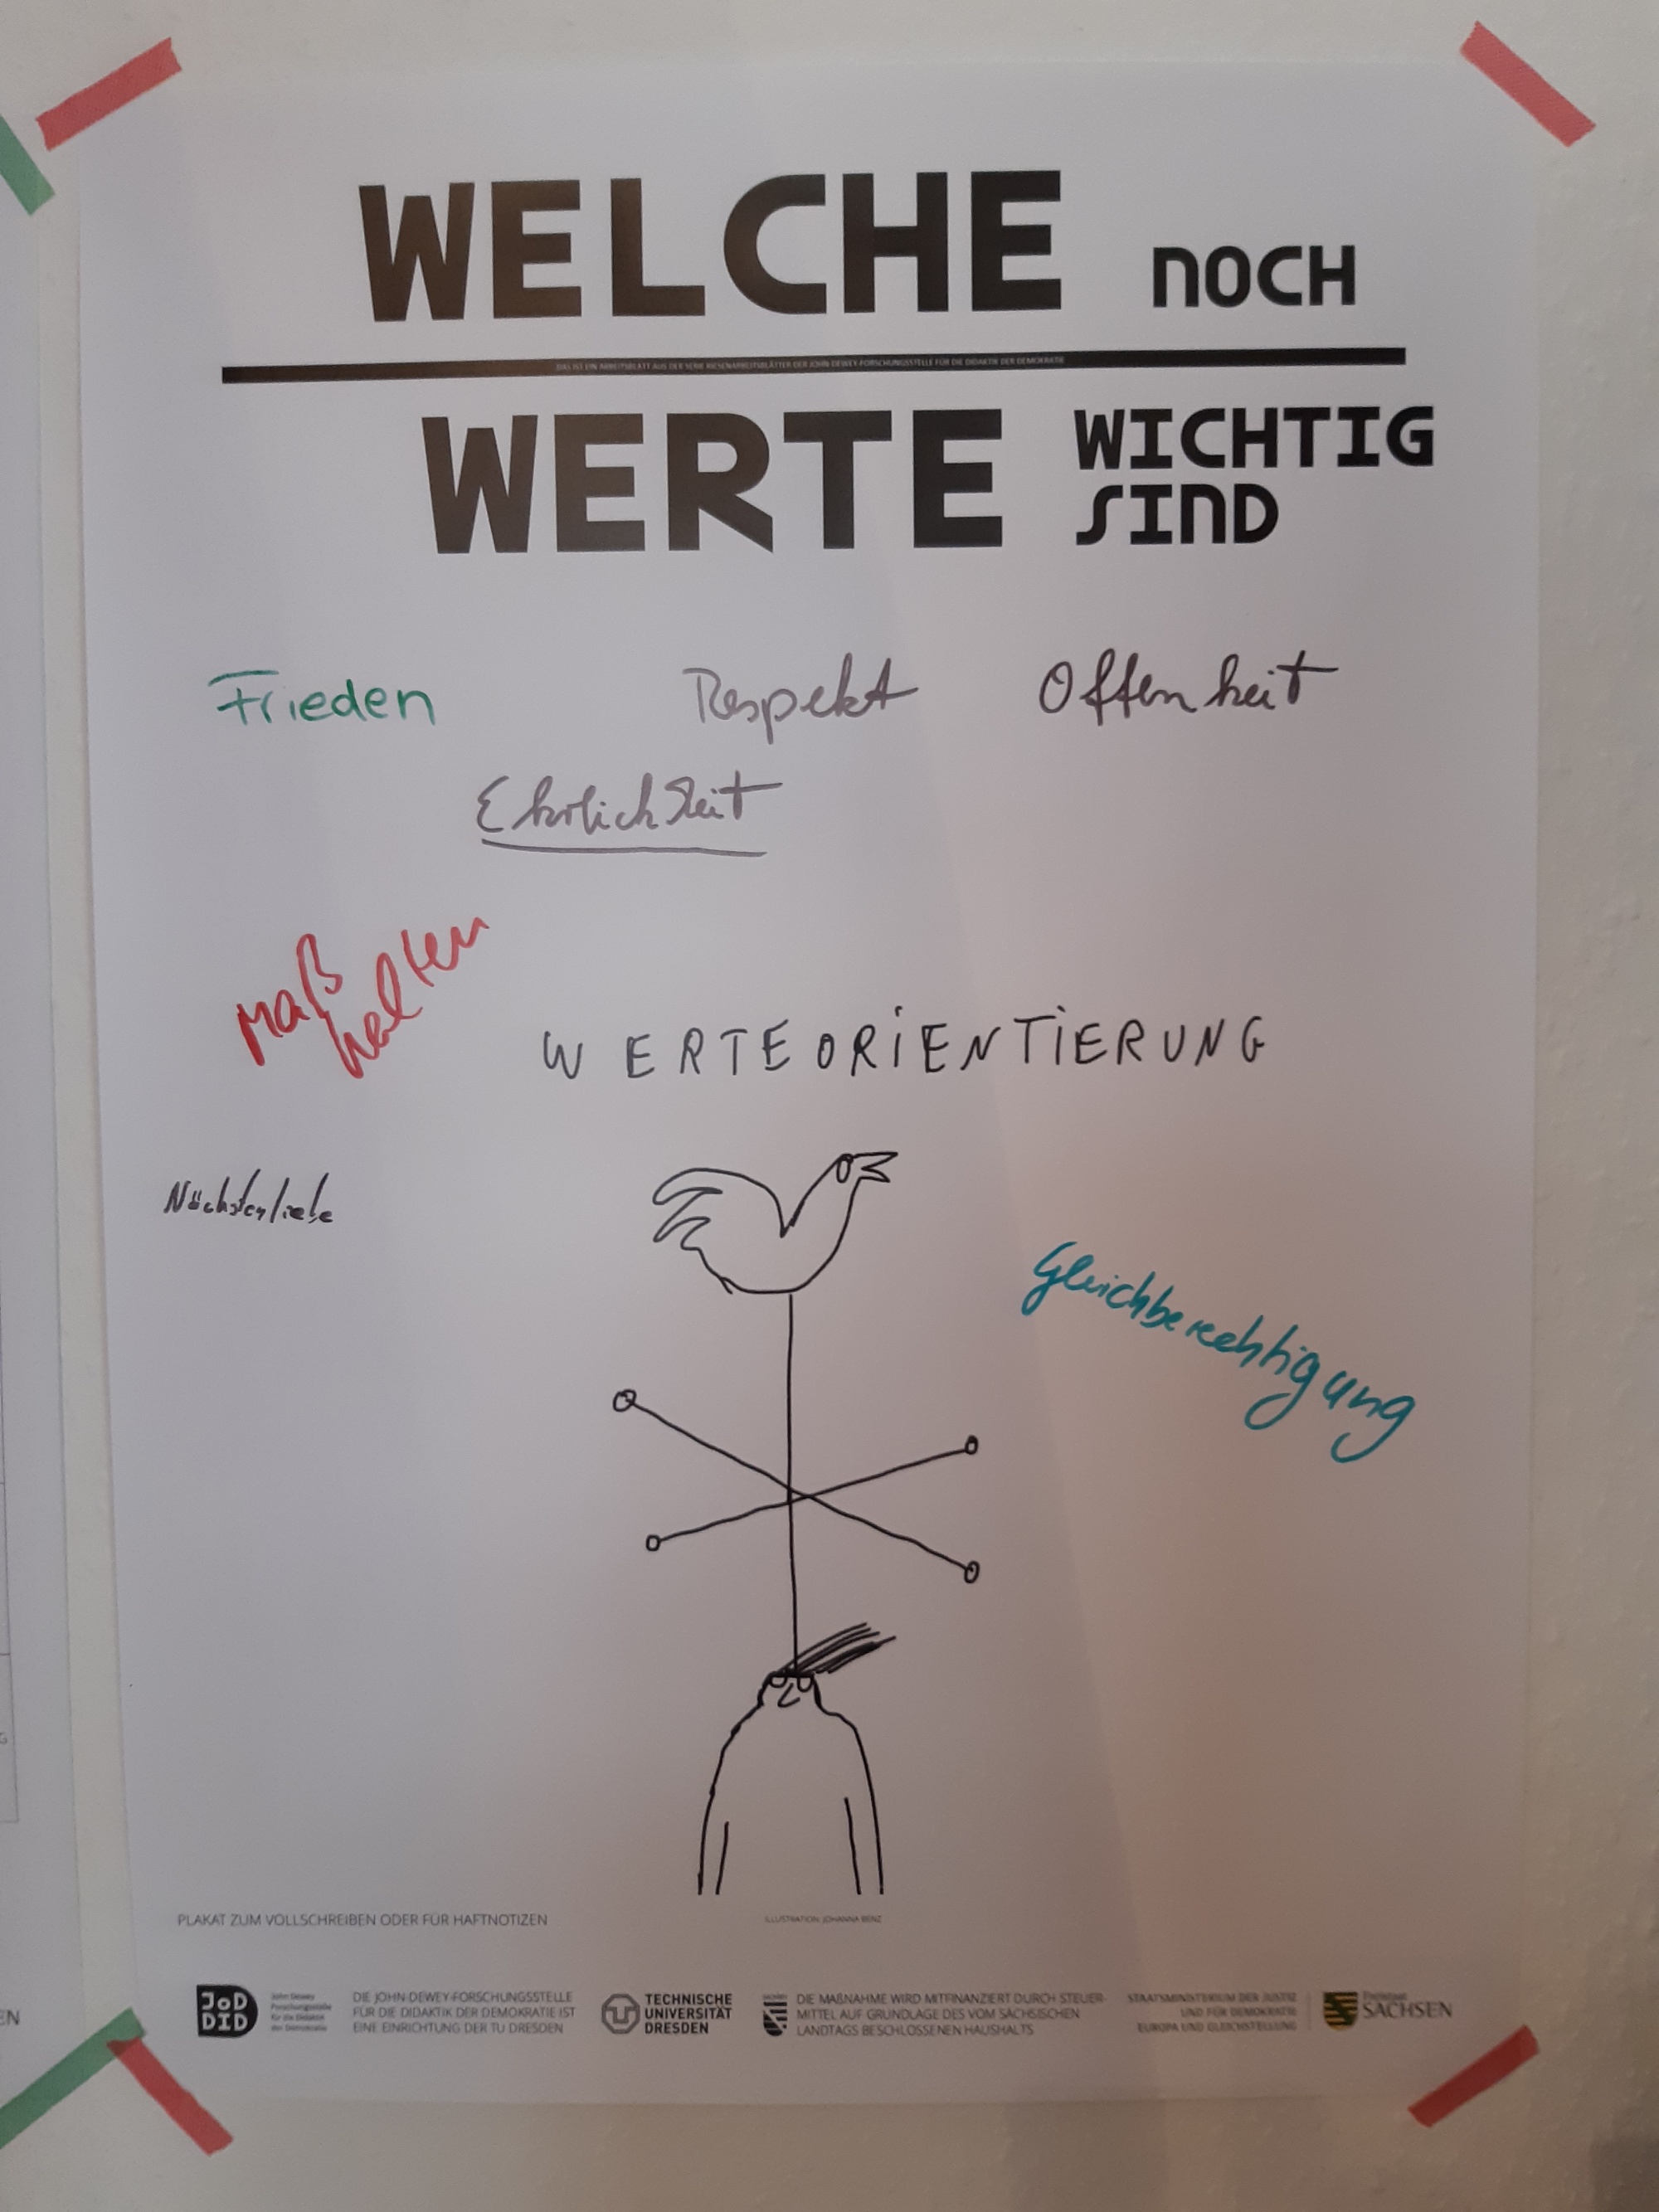 WELCHE NOCH
DAS IST EIN ARBEITSBLATT AUS DER SERIE RIESENARBEITSBLÄTTER DER JOHN-DEWEY-FORSCHUNGSSTELLE FÜR DIE DIDAKTIK DER DEMOKRATIE
WERTE WICHTIG
SIND
Frieden Respekt Offenheit
Ehrlichkeit
Maß
halten
WERTEORIENTIERUNG
Nächstenliebe
Gleichberechtigung
PLAKAT ZUM VOLLSCHREIBEN ODER FÜR HAFTNOTIZEN
ILLUSTRATION: JOHANNA BENZ
JoD
DID
John Dewey
Forschungsstelle
für die Didaktik
der Demokratie
DIE JOHN-DEWEY-FORSCHUNGSSTELLE
FÜR DIE DIDAKTIK DER DEMOKRATIE IST
EINE EINRICHTUNG DER TU DRESDEN
TECHNISCHE
UNIVERSITÄT
DRESDEN
DIE MAßNAHME WIRD MITFINANZIERT DURCH STEUER-
MITTEL AUF GRUNDLAGE DES VOM SÄCHSISCHEN
LANDTAGS BESCHLOSSENEN HAUSHALTS
STAATSMINISTERIUM DER JUSTIZ
UND FÜR DEMOKRATIE
EUROPA UND GLEICHSTELLUNG
Freistaat
SACHSEN